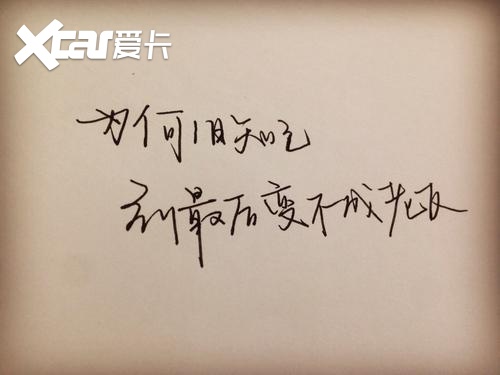 XCAR爱卡
为何旧知己
到最后变不成老友